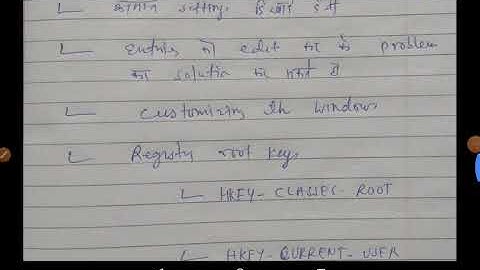 setting
entries को edit कर के problem
का solution कर सकते है
customizing th windows
Registry root keys
HKEY-CLASSES-ROOT
HKEY-CURRENT-USER